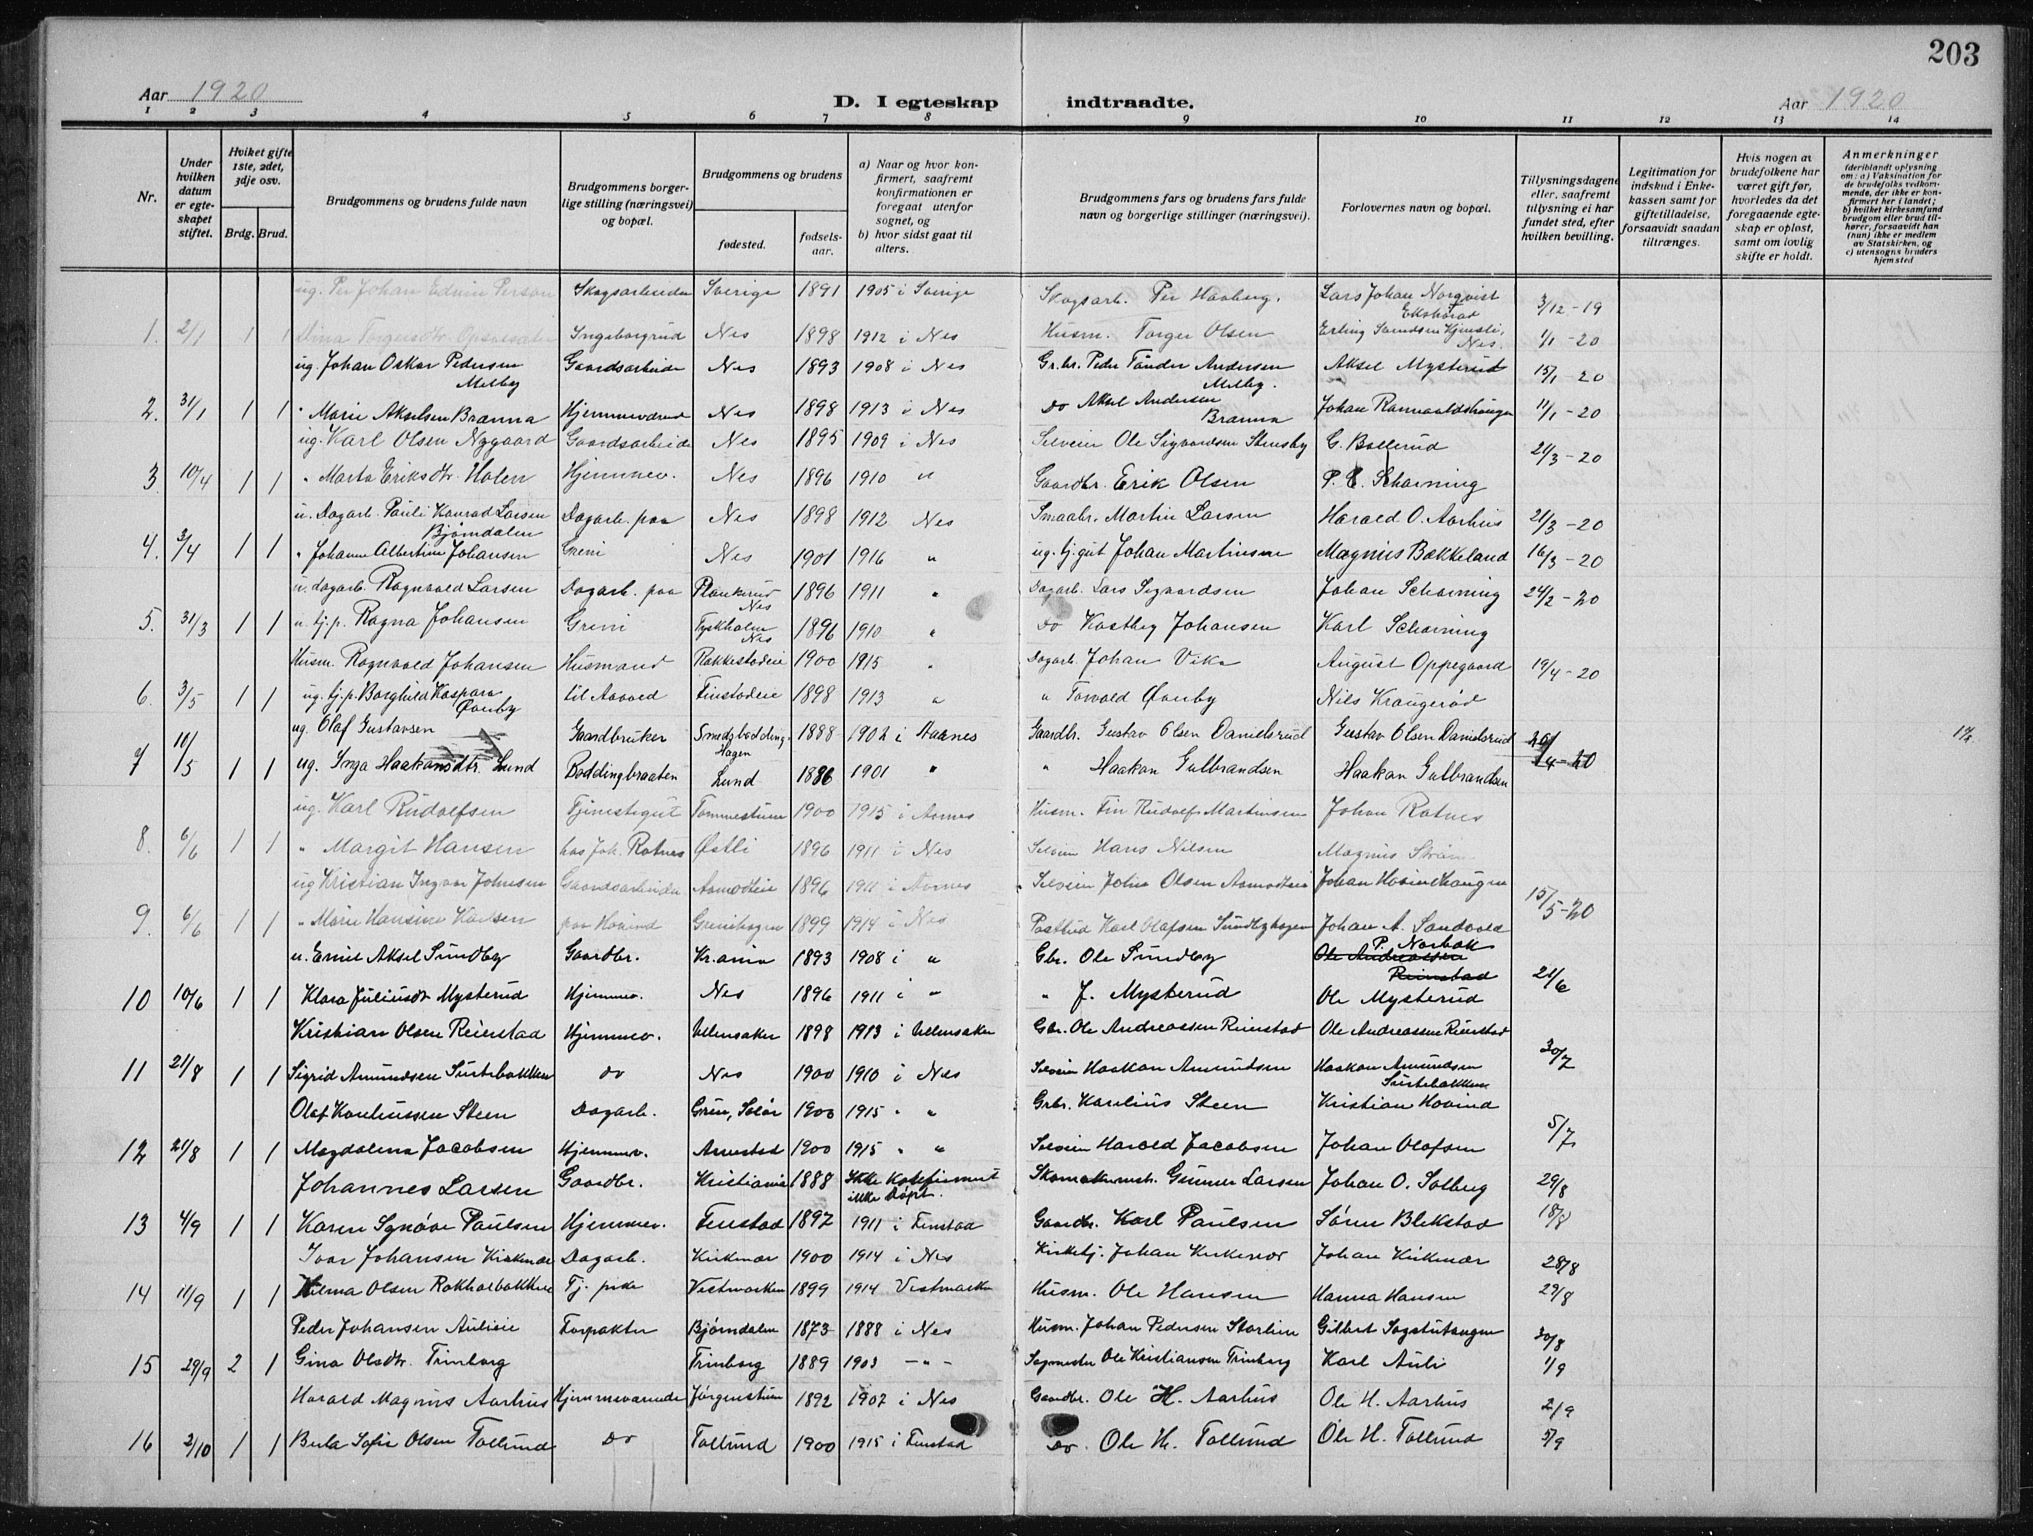 203
Aar 1920 D. I egteskap indtraadte. Aar 1920
1 2 3 4 5 6 7 8 9 10 11 12 13 14
Nr.
Under hvilken datum er egteskapet stiftet.
Hviket gifte 1ste, 2det, 3dje osv.
Brdg. Brud.
Brudgommens og brudens fulde navn
Brudgommens borgerlige stilling (næringsvei) og bopæl.
Brudgommens og brudens
fødested.
fødselsaar.
a) Naar og hvor konfirmert, saafremt konfirmationen er foregaat utenfor sognet, og
b) hvor sidst gaat til alters.
Brudgommens fars og brudens fars fulde navn og borgerlige stillinger (næringsvei).
Forlovernes navn og bopæl.
Tillysningsdagene eller, saafremt tillysning ei har fundet sted, efter hvilken bevilling.
Legitimation for indskud i Enkekassen samt for giftetilladelse, forsaavidt saadan tiltrænges.
Hvis nogen av brudefolkene har været gift før, hvorledes da det foregaaende egteskap er opløst, samt om lovlig skifte er holdt.
Anmerkninger
(deriblandt oplysning om: a) Vaksination for de brudefolks vedkommende, der ikke er konfirmert her i landet; b) hvilket kirkesamfund brudgom eller brud tilhører, forsaavidt han (hun) ikke er medlem av Statskirken, og c) utensogns bruders hjemsted
ug. Per Johan Edvin Person Skogsarbeider Sverige 1891 1905 i Sverige Skogsarb. Per Haaberg. Lars Johan Norqvist 3/12-19
1. 2/1 1 1 Torgersdtr. Ingeborgrud Nes 1898 1912 i Nes Husm. Torger Olsen Erling Nes. 1/1-20
ug. Johan Oskar Pedersen Melby Gaardsarbeide Nes 1893 1908 i Nes Gr.br. Peder Tønder Andersen Melby. Aksel Mysterud 15/1-20
2. 31/1 1 1 " Marie Akselsen Branna Hjemmeværend Nes 1898 1913 i Nes Do Aksel Andersen Branna Johan 11/1-20
ug. Karl Olsen Nygaard Gaardsarbeide Nes 1895 1909 i Nes Selveier Ole Sigvardsen Stensby G. Bollerud 21/3-20
3. 10/4 1 1 " Marta Eriksdtr. Holen Hjemmev. Nes 1896 1910 " Gaardbr. Erik Olsen P. E. Scharning
u. Dagarb. Pauli Konrad Larsen Bjørndalen Dagarb. paa Nes 1898 1912 Nes Smaabr. Martin Larsen Harald O. Aarhus 21/3-20
4. 3/4 1 1 " Johanne Albertine Johansen Greni Nes 1901 1916 " ug. tj.gut Johan Martinsen Magnus Bækkeland 16/3-20
u. dagarb. Ragnvald Larsen Dagarb. paa Plankerud Nes 1896 1911 " Dagarb. Lars Sigvardsen Johan Scharning 24/2-20
5. 31/3 1 1 u. tj.p. Ragna Johansen Greni Tyskholm Nes 1896 1910 " Do Kastby Johansen Karl Scharning
Husm. Ragnvald Johansen Husmand Rakkestadeie 1900 1915 " Dagarb. Johan Vika August Oppegaard 19/4-20
6. 3/5 1 1 ug. tj.p. Borghild Kaspara Øvrby til Aavold Finstadeie 1898 1913 " " Torvald Øvrby Nils Kraugerød
ug. Olaf Gustavsen Gaardbruker Smedsbøddinghagen 1888 1902 i Aarnes Gaardbr. Gustav Olsen Danielsrud Gustav Olsen Danielsrud
7 10/5 1 1 ug. Inga Haakansdtr. Lund Bøddingbraaten Lund 1886 1901 " " Haakan Gulbrandsen Haakan Gulbrandsen
ug. Karl Rudolfsen Tjenestegut Tommestuen 1900 1915 i Aarnes Husm. Fin Rudolf Martinsen Johan Rotnes
8. 6/6 1 1 " Margit Hansen hos Joh. Rotnes Østli 1896 1911 i Nes Selveier Hans Nilsen Magnus Strøm
ug Kristian Ingvar Johnsen Gaardsarbeider Aamodteie 1896 1911 i Aarnes Selveier John Olsen Aamodteie Johan Hovindhaugen 15/5-20
9. 6/6 1 1 " Marie Hansine Karlsen paa Hovind Grenihagen 1899 1914 i Nes Postbud Karl Olafsen Sundbyhagen Johan A. Sandvold
u. Emil Aksel Sundby Gaardbr. Kr.ania 1893 1908 i " Gbr. Ole Sundby P. Norbak Ole Andreassen Reinstad 21/6
10 10/6 1 1 Klara Juliusdtr Mysterud Hjemmev. Nes 1896 1911 i " " J. Mysterud Ole Mysterud
Kristian Olsen Reinstad Hjemmev. Ullensaker 1898 1913 i Ullensaker Gbr. Ole Andreassen Reinstad Ole Andreassen Reinstad 30/7
11 21/8 1 1 Sigrid Amundsen Sustebakken do Nes 1900 1910 i Nes Selveier Haakan Amundsen Haakan Amundsen Sustebakken
Olaf Kareliussen Steen Dagarb. Grue, Solør 1900 1915 " " Grbr. Karelius Steen Kristian Hovind 5/7
12 21/8 1 1 Magdalena Jacobsen Hjemmev. Arnestad 1900 1915 " " Selveier Harald Jacobsen Johan Olafsen
Johannes Larsen Gaardbr. Kristiania 1888 Ikke Konfirmert ikke døpt. Skomakermstr. Gunner Larsen Johan O. Solberg 29/8
13 4/9 1 1 Karen Synøve Paulsen Hjemmev. Fenstad 1897 1911 i Fenstad Gaardbr. Karl Paulsen Søren Blekstad 18/8
Ivar Johansen Kirkenær Dagarb. Kirkenær 1900 1914 i Nes Kirketj. Johan Kirkenær Johan Kirkenær 28/8
14 11/9 1 1 Helma Olsen Rakholbakken Tj. pike Vestmarken 1899 1914 Vestmarken Husm. Ole Hansen Hanna Hansen 29/8
Peder Johansen Aulieie Forpakter Bjørndalen 1873 1888 i Nes Husm. Johan Pedersen Storlien Gilbert Sagstutangen 30/8
15 29/9 2 1 Gina Olsdtr. Trinborg Trinborg 1889 1903 - " - Sagmester Ole Kristiansen Trinborg Karl Auli 1/9
Harald Magnus Aarhus Hjemmeværende Jørgenstuen 1892 1907 i Nes Gaardbr. Ole H. Aarhus Ole H. Aarhus 2/9
16 2/10 1 1 Berla Sofie Olsen Tollund Do Tollund 1900 1915 i Fenstad Do. Ole H. Tollund Ole H. Tollund 5/9